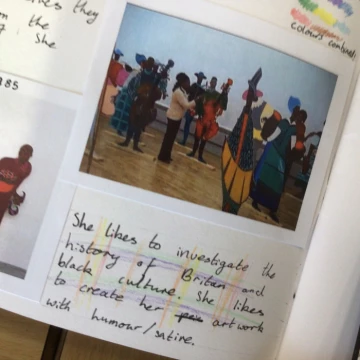 they
from the
She
985
colours
She likes to investigate the
history of Britan and
black culture. She likes
to create her artwork
with humour/satire.